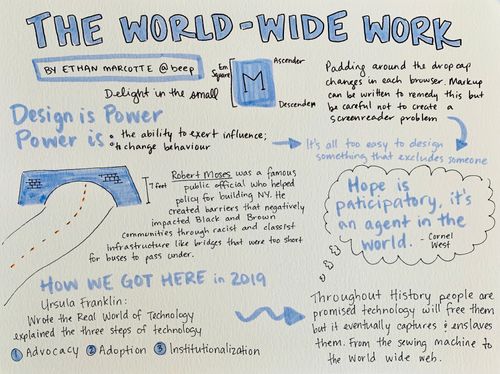 THE WORLD-WIDE WORK
BY ETHAN MARCOTTE @beep
Delight in the small
Em
Square
M
Ascender
Descender
Padding around the drop cap
changes in each browser. Markup
can be written to remedy this but
be careful not to create a
screenreader problem
Design is Power
Power is : • the ability to exert influence;
• to change behaviour
It's all too easy to design
something that excludes someone
7 feet
Robert Moses was a famous
public official who helped
policy for building NY. He
created barriers that negatively
impacted Black and Brown
communities through racist and classist
infrastructure like bridges that were too short
for buses to pass under.
Hope is
paticipatory, it's
an agent in the
world. - Cornel
West
HOW WE GOT HERE in 2019
Ursula Franklin:
Wrote the Real World of Technology
explained the three steps of technology
1 Advocacy 2 Adoption 3 Institutionalization
Throughout History people are
promised technology will free them
but it eventually captures & enslaves
them. From the sewing machine to
the world wide web.